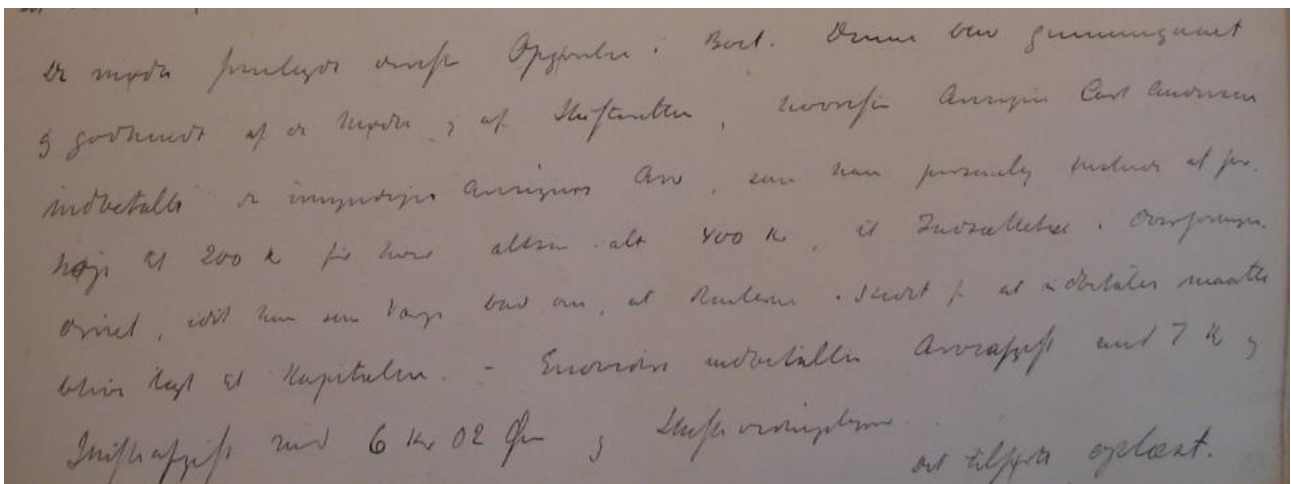 De mødte fremlagde derefter Opgørelse i Boet. Denne blev gennemgaaet
og godkendt af de Mødte og af Skifteretten, hvorefter Arvingen Carl Andersen
indbetalte de umyndige Arvingers Arv, som han personlig ønskede at for-
høje til 200 Kr for hver altsaa ialt 400 Kr, til Indsættelse i Overformyn-
deriet, idet han som Værge bad om, at Renterne i Stedet for at udbetales maatte
blive lagt til Kapitalen. - Endvidere indbetaltes Arveafgift med 7 Kr og
Skifteafgift med 6 Kr 02 Øre og
det tilførte oplæst.